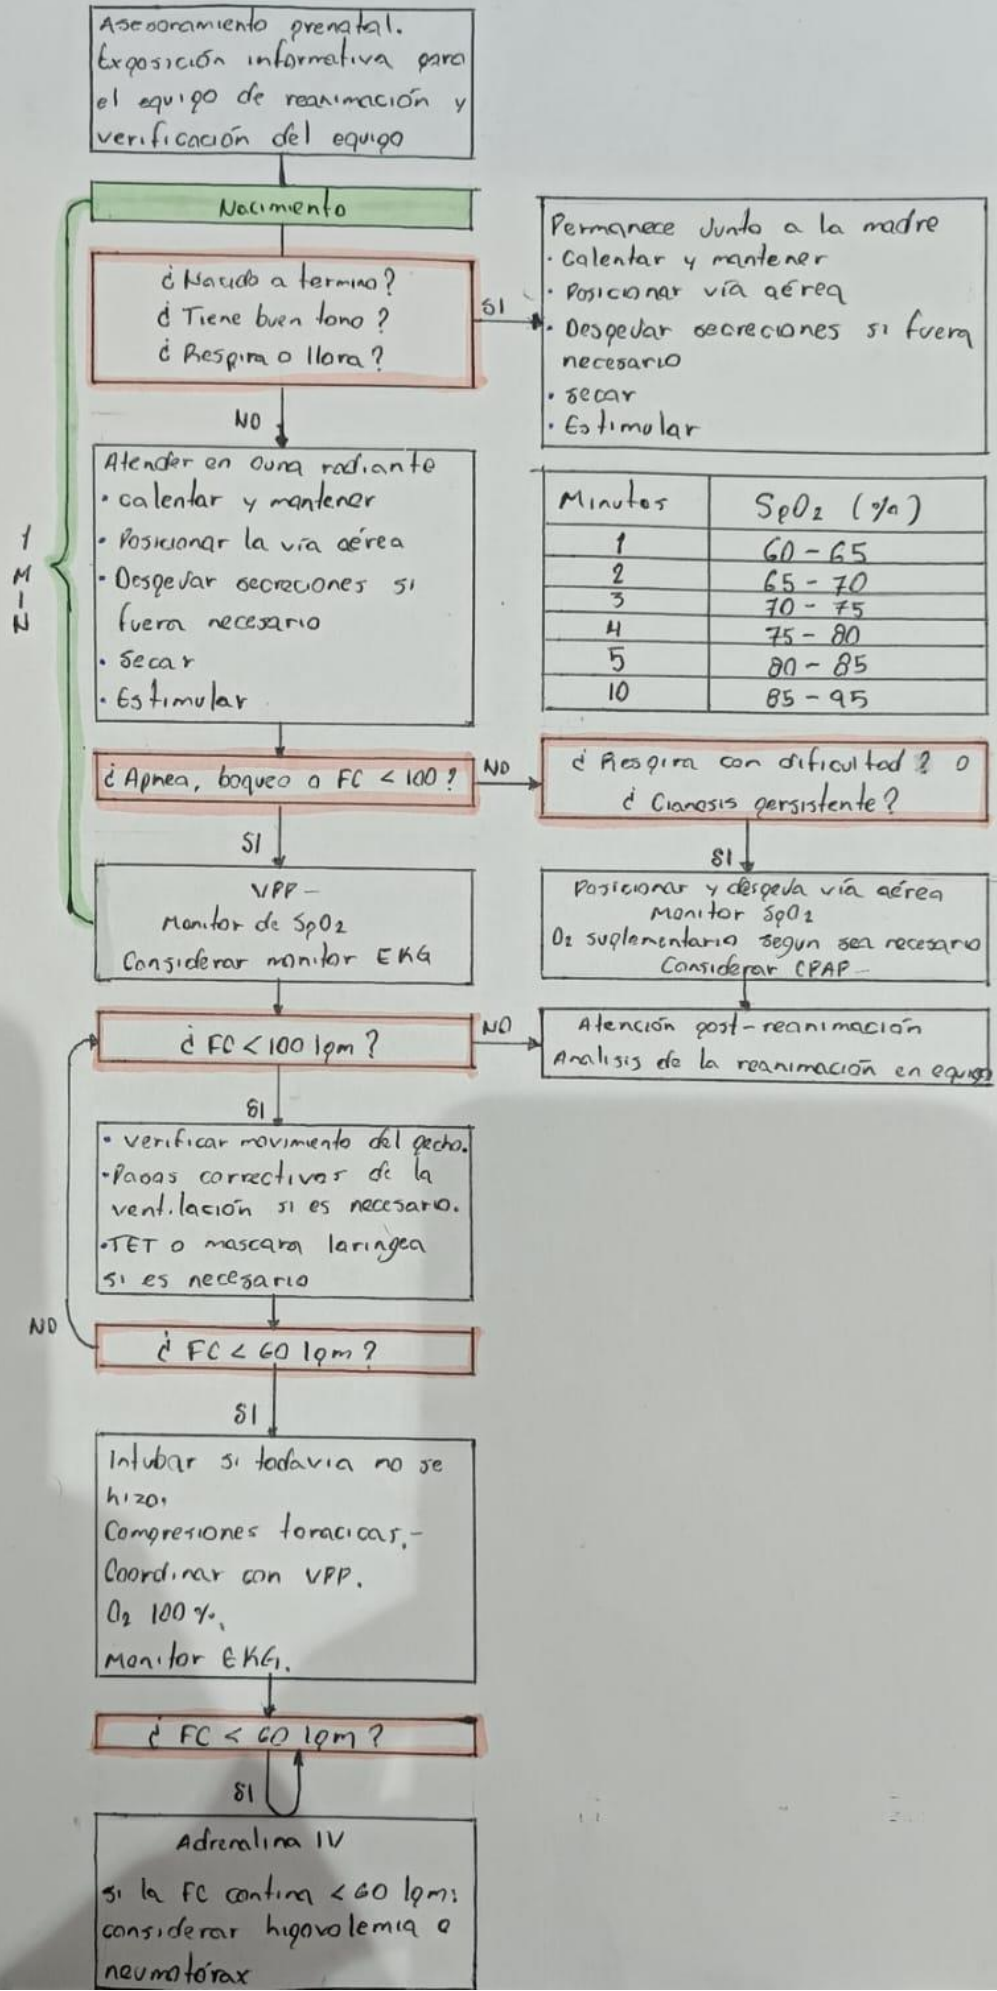 Asesoramiento prenatal.
Exposición informativa para
el equipo de reanimación y
verificación del equipo
Nacimiento
¿Nacido a termino?
¿Tiene buen tono?
¿Respira o llora?
SI
Permanece Junto a la madre
· Calentar y mantener
· Posicionar vía aérea
· Despejar secreciones si fuera
necesario
· secar
· Estimular
NO
1 MIN
Atender en cuna radiante
· calentar y mantener
· Posicionar la vía aérea
· Despejar secreciones si
fuera necesario
· Secar
· Estimular
Minutos SpO2 (%)
1 60 - 65
2 65 - 70
3 70 - 75
4 75 - 80
5 80 - 85
10 85 - 95
¿Apnea, boqueo o FC < 100?
NO
¿Respira con dificultad? o
¿Cianosis persistente?
SI
VPP -
Monitor de SpO2
Considerar monitor EKG
SI
Posicionar y despeja vía aérea
Monitor SpO2
O2 suplementario segun sea necesario
Considerar CPAP -
¿FC < 100 lpm?
NO
Atención post-reanimación
Analisis de la reanimación en equipo
SI
· verificar movimiento del pecho.
· Pasos correctivos de la
ventilación si es necesario.
· TET o mascara laringea
si es necesario
NO
¿FC < 60 lpm?
SI
Intubar si todavia no se
hizo.
Compresiones toracicas. -
Coordinar con VPP.
O2 100 %.
Monitor EKG.
¿FC < 60 lpm?
SI
Adrenalina IV
si la FC contina < 60 lpm:
considerar hipovolemia o
neumotórax